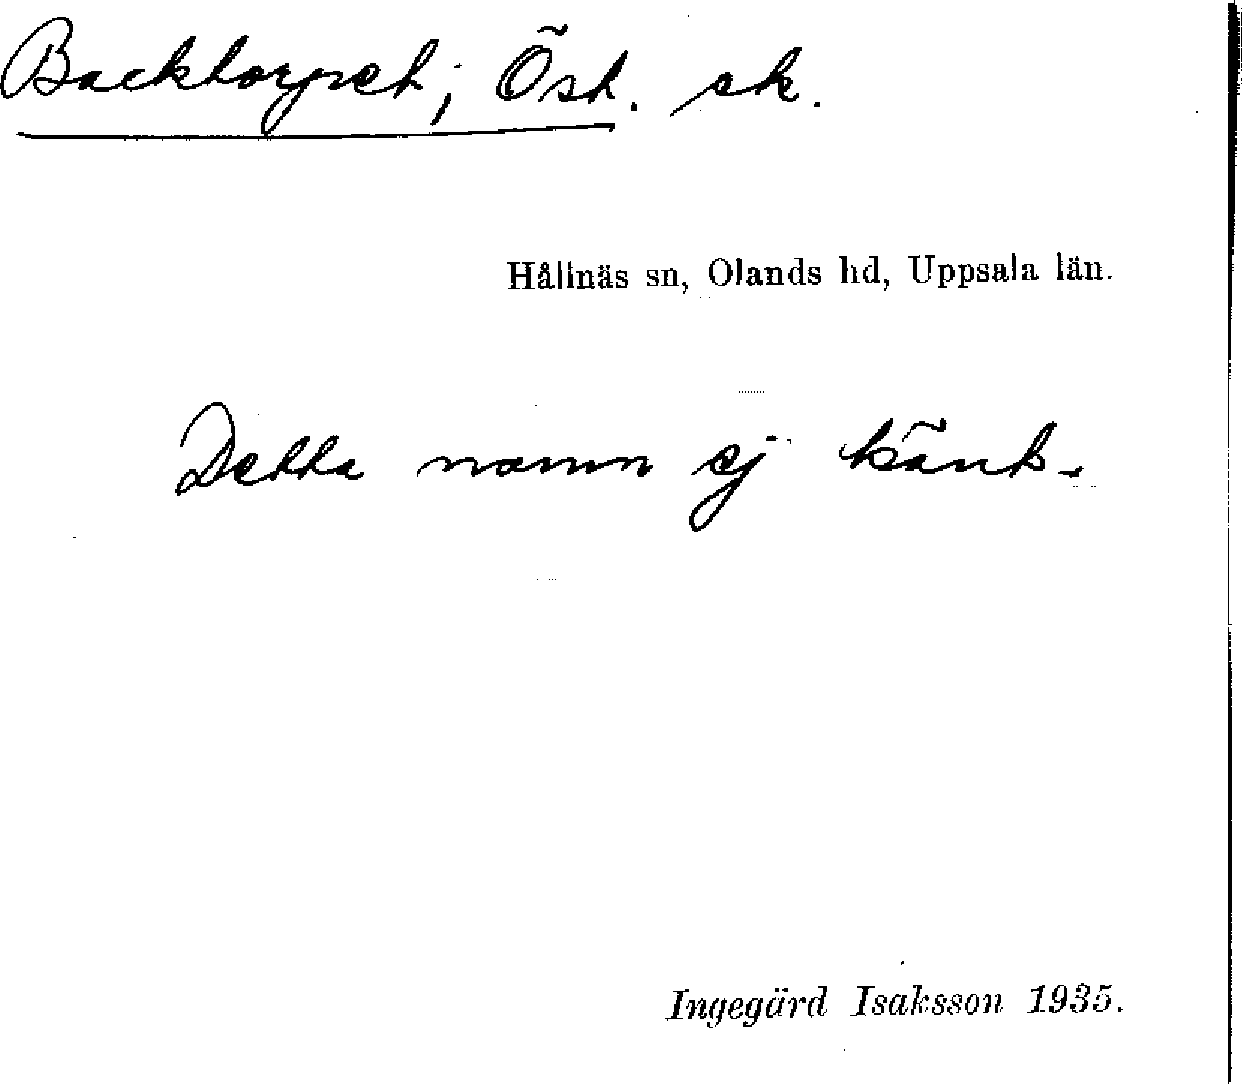 Backtorpet, Öst. ek.
Hållnäs sn, Olands hd, Uppsala län.
Detta namn ej känt.
Ingegärd Isaksson 1935.